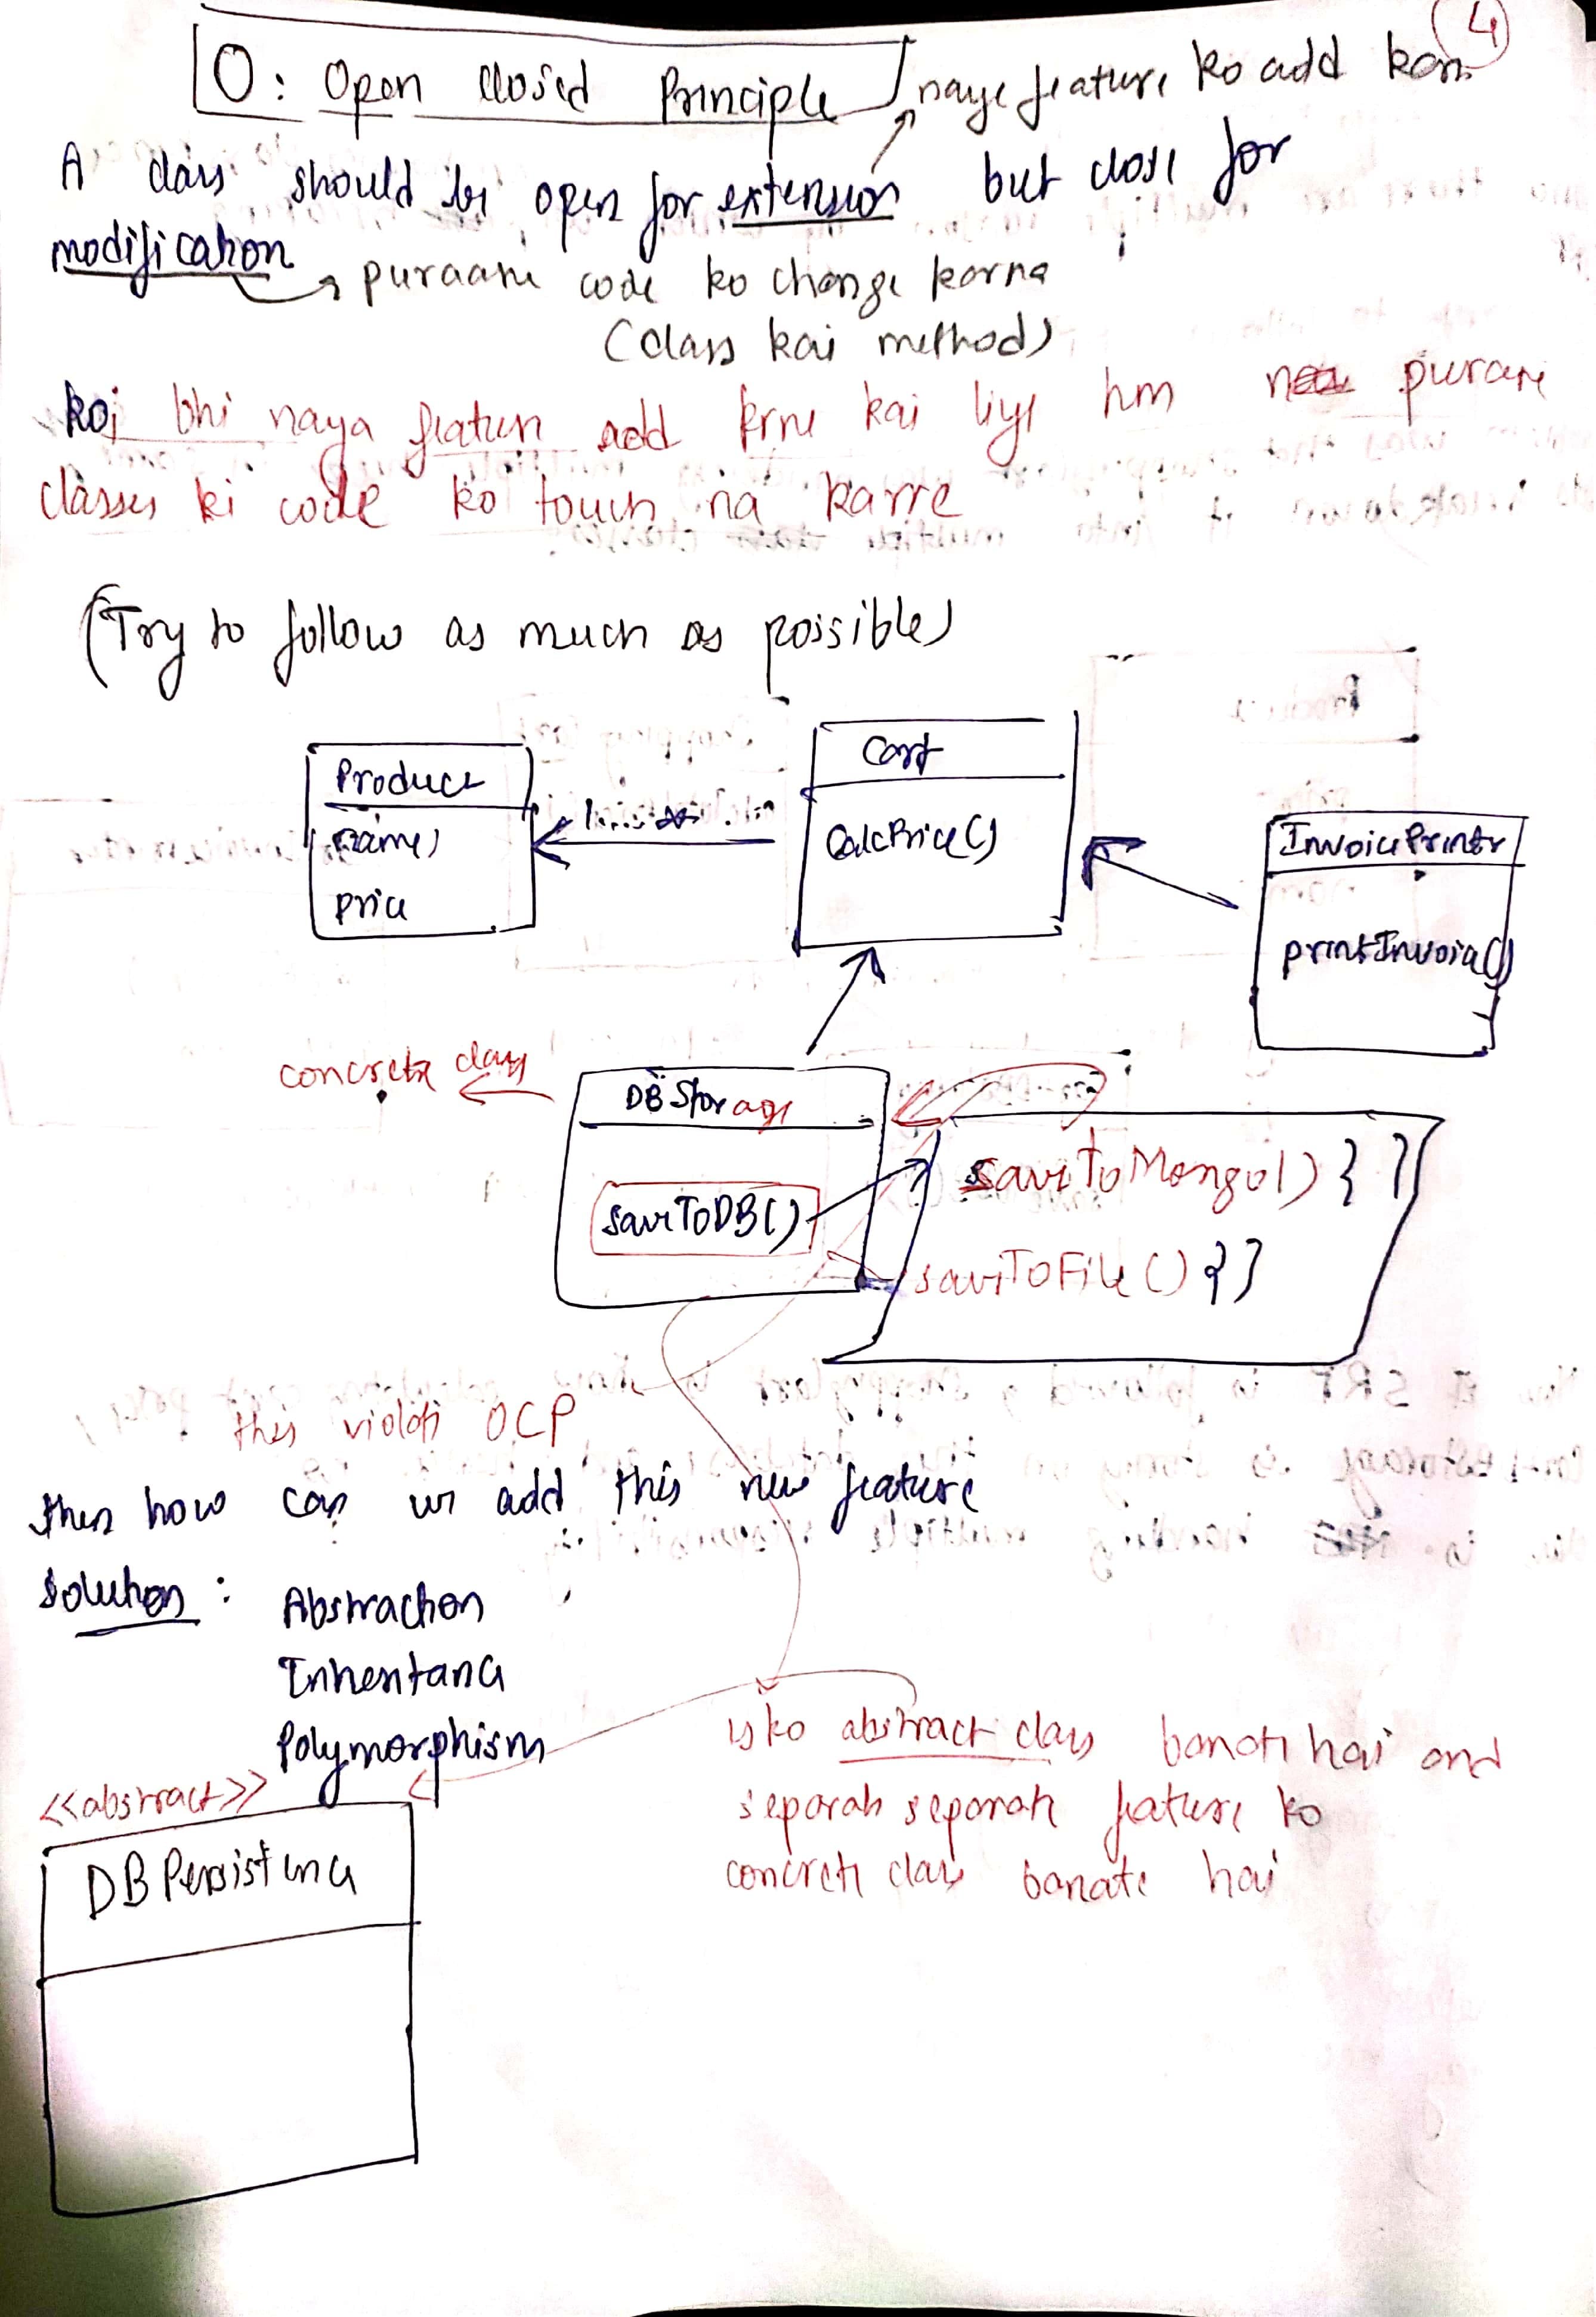 4
O: Open Closed Principle
naye feature ko add kar
A class should be open for extension but close for
modification
puraane code ko change karna
(class kai method)
koi bhi naya feature add krne kai liye hm purane
classes ki code ko touch na karre
(Try to follow as much as possible)
Product
name
price
Cart
CalcPrice()
InvoicePrinter
printInvoice()
concrete class
DBStorage
saveToDB()
saveToMongo() { }
saveToFile() { }
this violate OCP
then how can we add this new feature
solution :
Abstraction
Inheritance
Polymorphism
<<abstract>>
DBPersistence
isko abstract class banate hai and
separate separate feature ko
concrete class banate hai